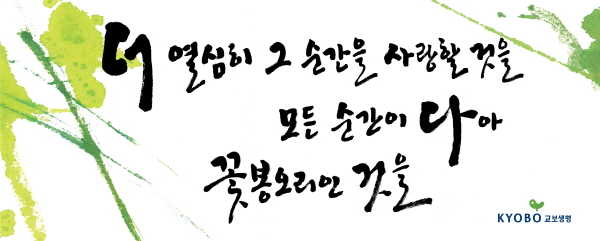 더 열심히 그 순간을 사랑할 것을
모든 순간이 다아
꽃봉오리인 것을
KYOBO 교보생명